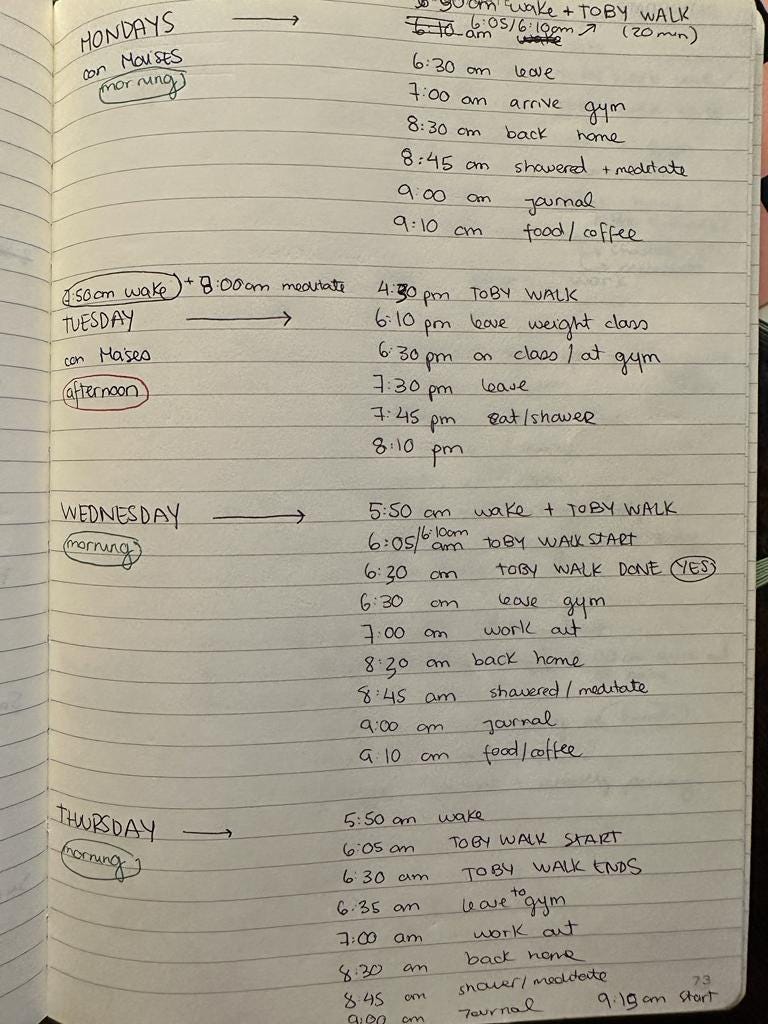 MONDAYS → wake + TOBY WALK
6:10 am 6:05/6:10am ↗ (20 min)
con MOISES
wake
morning
6:30 am leave
7:00 am arrive gym
8:30 am back home
8:45 am showered + meditate
9:00 am journal
9:10 am food / coffee
7:50am wake + 8:00am meditate
4:30 pm TOBY WALK
TUESDAY → 6:10 pm leave weight class
con Moises 6:30 pm on class / at gym
afternoon 7:30 pm leave
7:45 pm eat/shower
8:10 pm
WEDNESDAY → 5:50 am wake + TOBY WALK
morning 6:05/6:10am am TOBY WALK START
6:30 am TOBY WALK DONE YES
6:30 am leave gym
7:00 am work out
8:30 am back home
8:45 am showered / meditate
9:00 am journal
9:10 am food/coffee
THURSDAY → 5:50 am wake
morning 6:05 am TOBY WALK START
6:30 am TOBY WALK ENDS
6:35 am leave to gym
7:00 am work out
8:30 am back home
8:45 am shower/meditate
73
9:00 am Journal 9:15am start